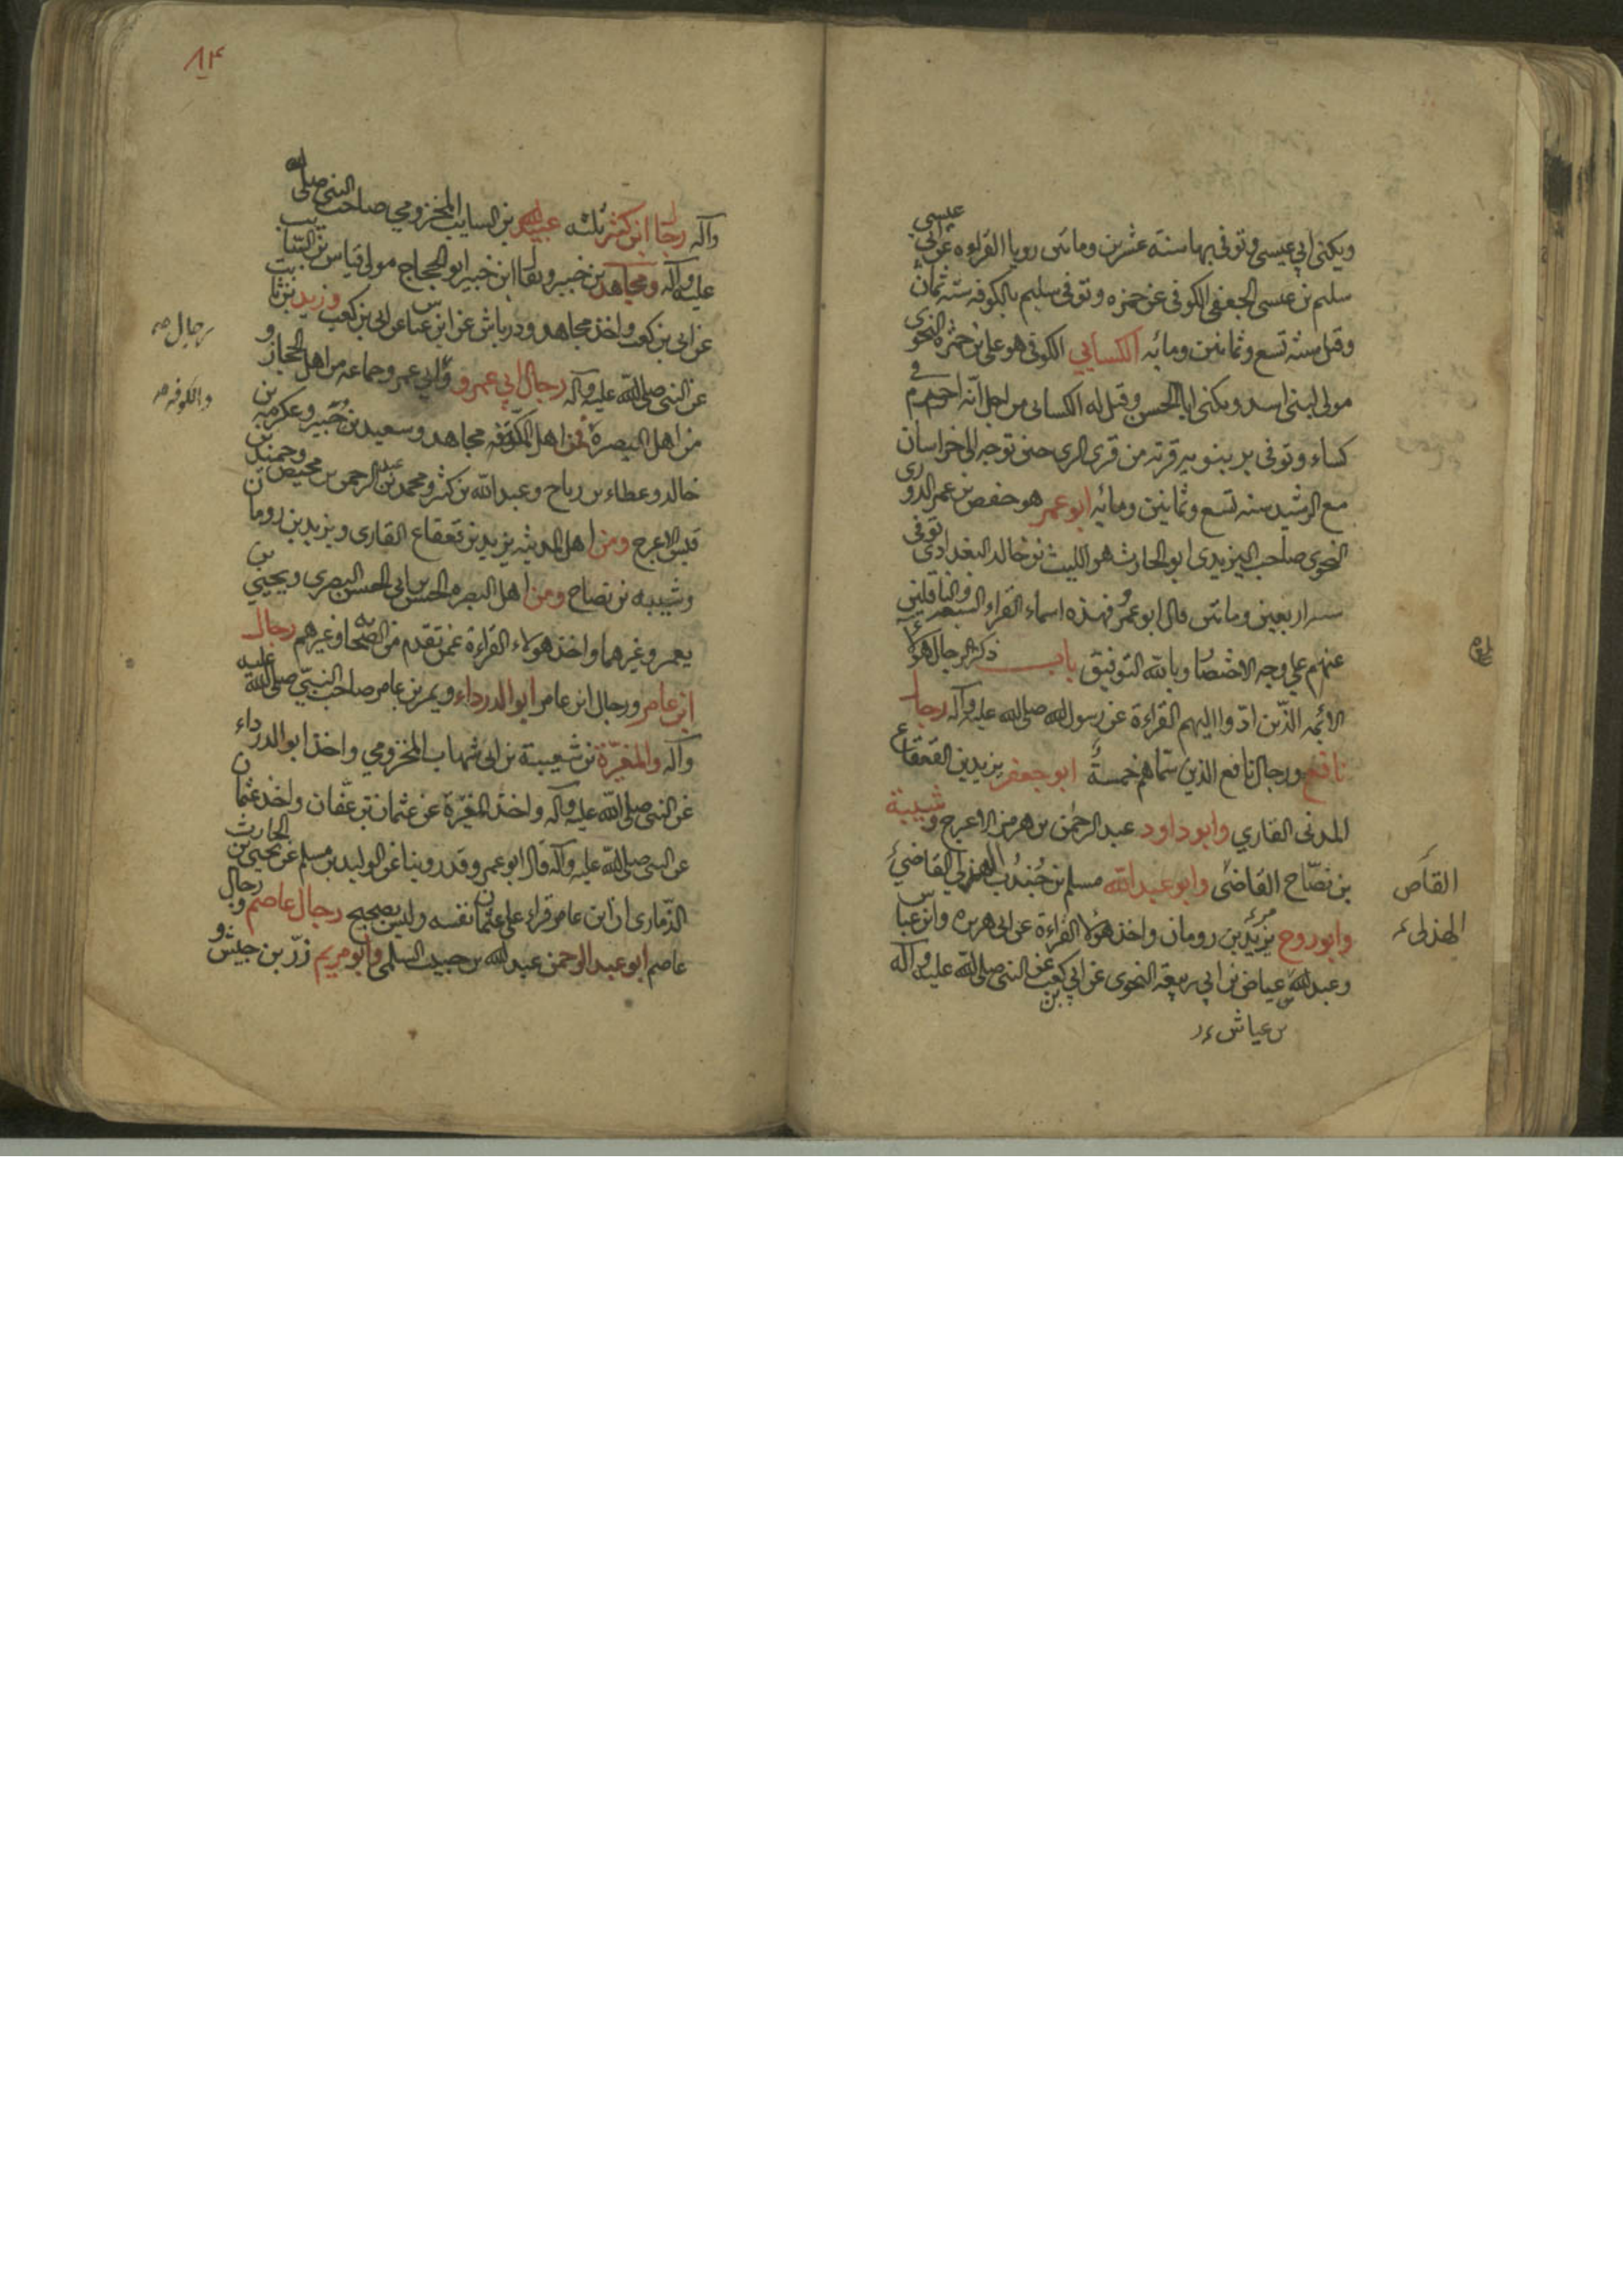 ويكنى ابي عيسى وتوفي بها سنة عشرين ومائتين رويا القراءه عن ابي عيسى
سليم بن عيسى الجعفي الكوفي عن حمزه وتوفي سليم بالكوفه سنه ثمان
وقيل سنه تسع وثمانين ومائه الكسايي الكوفي هو علي بن حمزه النحوى
مولى لبني اسد ويكنى ابا الحسن وقيل له الكسائى من اجل انه احرم في
كساء وتوفى برنبويه قريه من قرى الرى حين توجه الى خراسان
مع الرشيد سنه تسع وثمانين ومائه ابو عمر هو حفص بن عمر الدورى
النحوى صاحب اليزيدى ابو الحارث هو الليث بن خالد البغدادى توفى
سنه اربعين ومائتين قال ابو عمرو فهذه اسماء القراء السبعه والناقلين
عنهم على وجه الاختصار وبالله التوفيق باب ذكر رجال هؤلاء
الائمه الذين ادوا اليهم القراءة عن رسول الله صلى الله عليه وآله رجال
نافع ورجال نافع الذين سماهم خمسة ابو جعفر يزيد بن القعقاع
المدنى القاري وابو داود عبد الرحمن بن هرمز الاعرج وشيبة
بن نصاح القاضى وابو عبد الله مسلم بن جندب الهذلي القاضي
القاص
وابو روح يزيد بن رومان واخذ هؤلاء القراءة عن ابى هريره وابن عباس
الهذلى
وعبد الله عياض بن ابي ربيعة النحوى عن ابي بن كعب عن النبى صلى الله عليه وآله
بن عياش
٨٤
وآله رجال ابن كثير ثلثه عبد الله بن السايب المخزومي صاحب النبي صلى الله
عليه وآله ومجاهد بن خبير ويقال ابن خبير ابو الحجاج مولى قياس بن السايب
عن ابى بن كعب واخذ مجاهد ودرباش عن ابن عباس عن ابى بن كعب وزيد بن ثابت
رجال
عن النبى صلى الله عليه وآله رجال ابي عمرو وابي عمرو جماعه من اهل الحجاز و
والكوفه
من اهل البصرة فمن اهل المكة مجاهد وسعيد بن جبير وعكرمه بن
خالد وعطاء بن رباح وعبد الله بن كثير ومحمد بن عبد الرحمن بن محيصن وحميد بن
قيس الاعرج ومن اهل المدينه يزيد بن قعقاع القارى ويزيد بن رومان
وشيبه بن نصاح ومن اهل البصره الحسن بن ابى الحسن البصرى ويحيي بن
يعمر وغيرهما واخذ هولاء القراءة عمن تقدم من الصحابه وغيرهم رجال
ابن عامر ورجال ابن عامر ابو الدرداء ويمر بن عامر صاحب النبي صلى الله عليه
وآله والمغيرة بن شعيبة بن ابى شهاب المخزومي واخذ ابو الدرداء
عن النبى صلى الله عليه وآله واخذ المغيرة عن عثمان بن عفان واخذ عثمان
عن النبى صلى الله عليه وآله قال ابو عمرو وقد روينا عن الوليد بن مسلم عن يحيى بن الحارث
الذمارى ان ابن عامر قراء على عثمان نفسه وليس بصحيح رجال عاصم ورجال
عاصم ابو عبد الرحمن عبد الله بن حبيب السلمى وابو مريم زر بن حبيش و